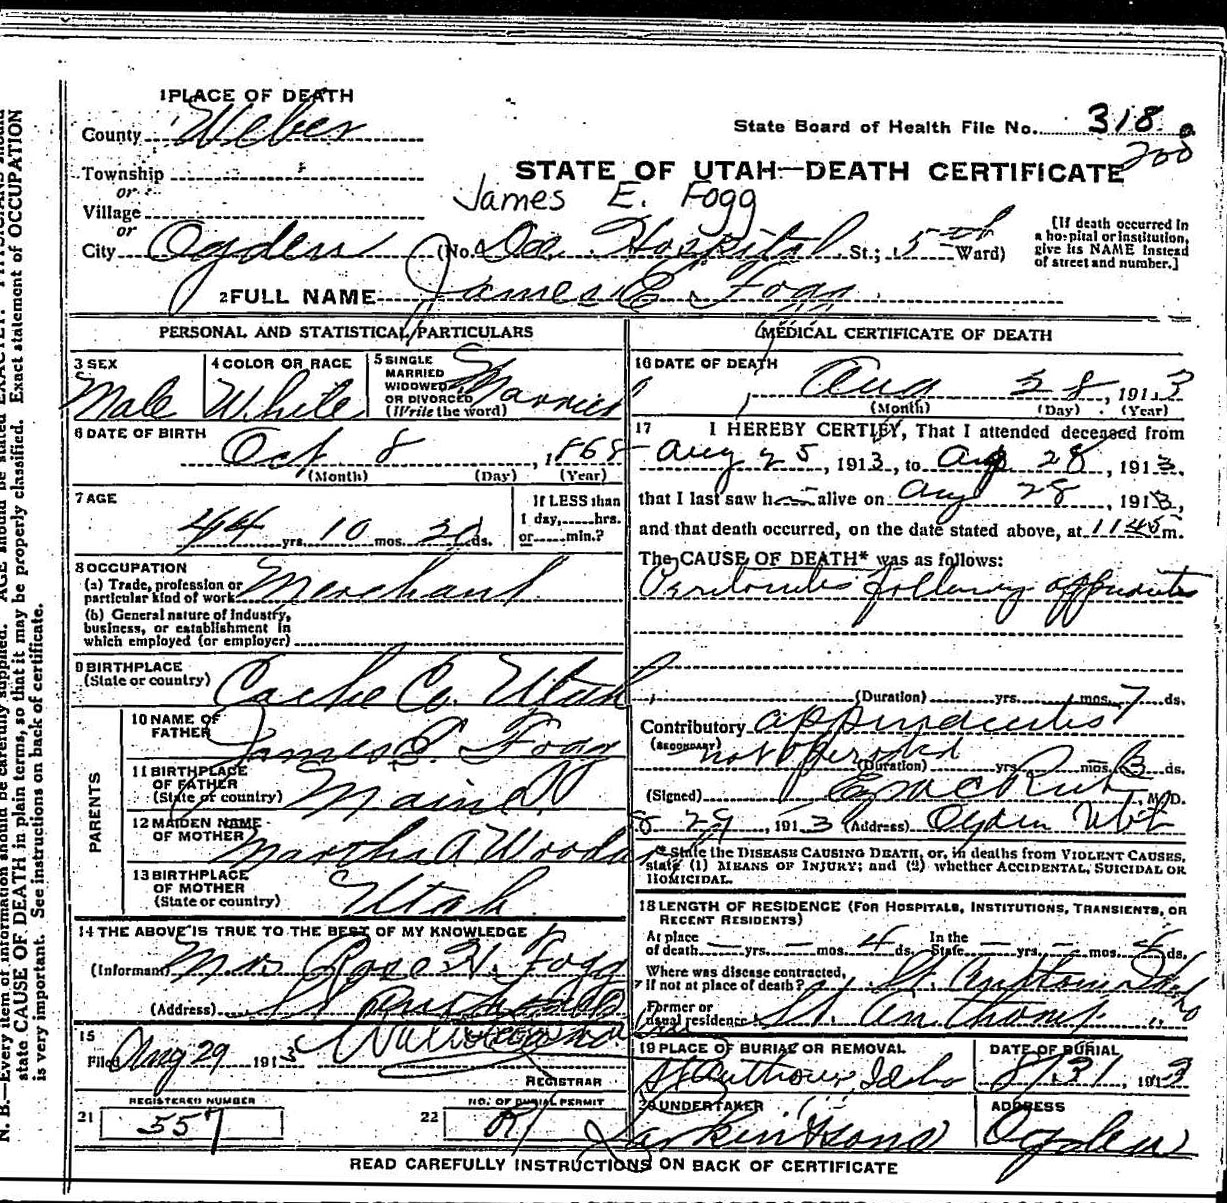 N. B.—Every item of information should be carefully supplied. AGE should be stated EXACTLY. PHYSICIANS should
state CAUSE OF DEATH in plain terms, so that it may be properly classified. Exact statement of OCCUPATION
is very important. See instructions on back of certificate.
1 PLACE OF DEATH
County Weber
State Board of Health File No. 318
200
Township
or
STATE OF UTAH—DEATH CERTIFICATE
James E. Fogg
Village
or
City Ogden (No. Dee Hospital St.; 5th Ward)
[If death occurred in
a hospital or institution,
give its NAME instead
of street and number.]
2 FULL NAME James E Fogg
PERSONAL AND STATISTICAL PARTICULARS
3 SEX
Male
4 COLOR OR RACE
White
5 SINGLE
MARRIED
WIDOWED
OR DIVORCED
(Write the word)
Married
6 DATE OF BIRTH
Oct 8, 1868
(Month) (Day) (Year)
7 AGE
44 yrs. 10 mos. 20 ds.
If LESS than
1 day, hrs.
or min.?
8 OCCUPATION
(a) Trade, profession or
particular kind of work Merchant
(b) General nature of industry,
business, or establishment in
which employed (or employer)
9 BIRTHPLACE
(State or country) Cache Co. Utah
PARENTS
10 NAME OF
FATHER James Fogg
11 BIRTHPLACE
OF FATHER
(State or country) Maine
12 MAIDEN NAME
OF MOTHER Martha A Woods
13 BIRTHPLACE
OF MOTHER
(State or country) Utah
14 THE ABOVE IS TRUE TO THE BEST OF MY KNOWLEDGE
(Informant) Mrs Rose H. Fogg
(Address) St Anthony Ida
15
Filed Aug 29 1913
REGISTRAR
REGISTERED NUMBER
21 557
NO. OF BURIAL PERMIT
22
MEDICAL CERTIFICATE OF DEATH
16 DATE OF DEATH
Aug 28, 1913
(Month) (Day) (Year)
17 I HEREBY CERTIFY, That I attended deceased from
Aug 25, 1913, to Aug 28, 1913,
that I last saw h alive on Aug 28, 1913,
and that death occurred, on the date stated above, at 1145 m.
The CAUSE OF DEATH* was as follows:
Peritonitis following appendicitis
(Duration) yrs. mos. 7 ds.
Contributory appendicitis
(SECONDARY) not operated
(Duration) yrs. mos. 3 ds.
(Signed) Ezra C Rich, M.D.
8 29, 1913 (Address) Ogden Utah
* State the DISEASE CAUSING DEATH, or, in deaths from VIOLENT CAUSES,
state (1) MEANS OF INJURY; and (2) whether ACCIDENTAL, SUICIDAL OR
HOMICIDAL.
18 LENGTH OF RESIDENCE (FOR HOSPITALS, INSTITUTIONS, TRANSIENTS, OR
RECENT RESIDENTS)
At place
of death — yrs. — mos. 4 ds. In the
State — yrs. — mos. 4 ds.
Where was disease contracted,
if not at place of death? St. Anthony Idaho
Former or
usual residence St. Anthony
19 PLACE OF BURIAL OR REMOVAL
St Anthony, Idaho
DATE OF BURIAL
8/31, 1913
20 UNDERTAKER
Larkin & Sons
ADDRESS
Ogden
READ CAREFULLY INSTRUCTIONS ON BACK OF CERTIFICATE